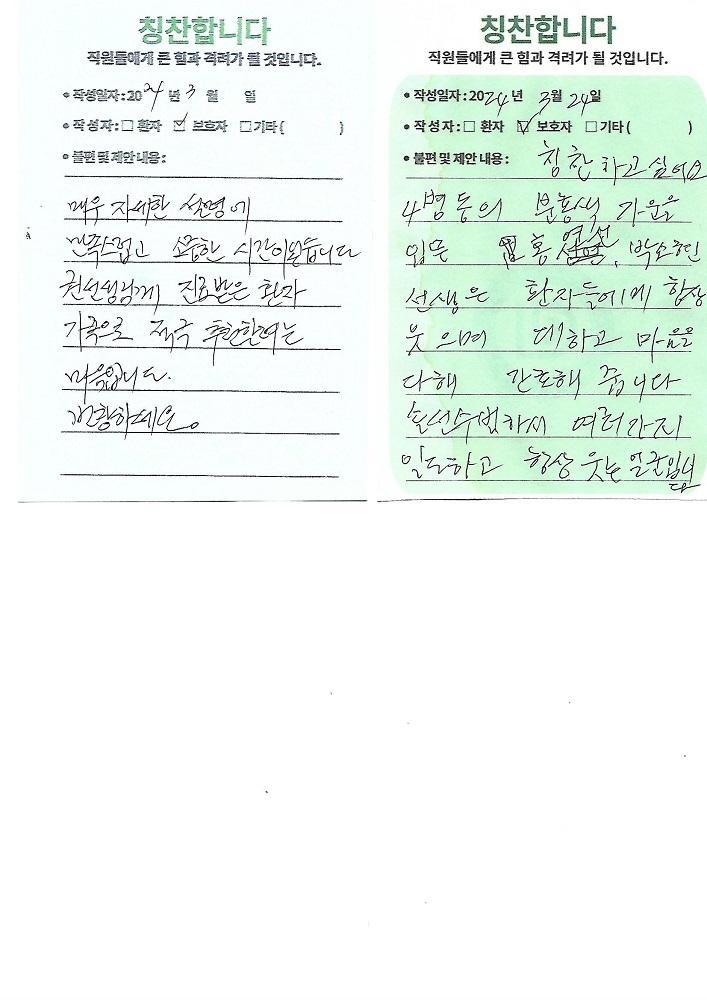 칭찬합니다
직원들에게 큰 힘과 격려가 될 것입니다.
• 작성일자 : 2024년 3월 일
• 작 성 자 : □ 환자 ☑ 보호자 □ 기타 ( )
• 불편 및 제안 내용 :
매우 자세한 설명에
만족스럽고 소중한 시간이었습니다
권선생님께 진료받은 환자
가족으로 적극 추천한다는
마음입니다.
건강하세요.
칭찬합니다
직원들에게 큰 힘과 격려가 될 것입니다.
• 작성일자 : 2024년 3월 24일
• 작 성 자 : □ 환자 ☑ 보호자 □ 기타 ( )
• 불편 및 제안 내용 : 칭찬하고 싶어요
4병동의 분홍색 가운을
입은 홍연선, 박오현
선생은 환자들에게 항상
웃으며 대하고 마음을
다해 간호해 줍니다
솔선수범하사 여러가지
일도하고 항상 웃는 얼굴입니다